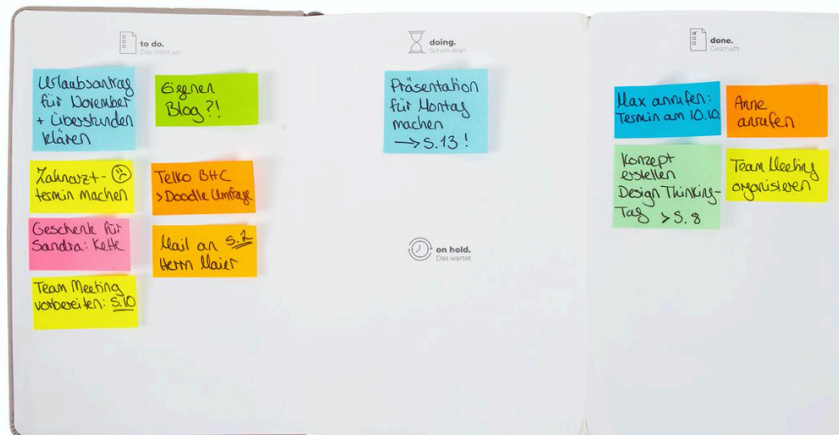 to do.
Das steht an.
Urlaubsantrag
für November
+ Überstunden
klären
Eigenen
Blog?!
Zahnarzt-
termin machen
Telko BHC
> Doodle Umfrage
Geschenk für
Sandra: Kette
Mail an S.2
Herrn Maier
Team Meeting
vorbereiten: S.10
doing.
Schon dran
Präsentation
für Montag
machen
→ S.13!
on hold.
Das wartet
done.
Geschafft
Max anrufen:
Termin am 10.10.
Anne
anrufen
Konzept
erstellen
Design Thinking-
Tag > S.8
Team Meeting
organisieren